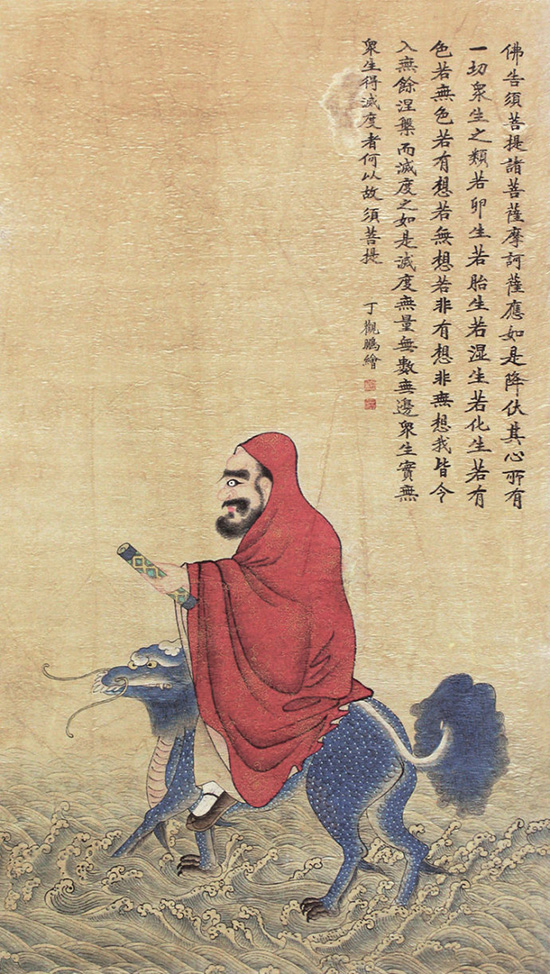 佛告須菩提諸菩薩摩訶薩應如是降伏其心所有
一切衆生之類若卵生若胎生若湿生若化生若有
色若無色若有想若無想若非有想非無想我皆令
入無餘涅槃而滅度之如是滅度無量無數無邊衆生實無
衆生得滅度者何以故須菩提
丁觀鵬繪